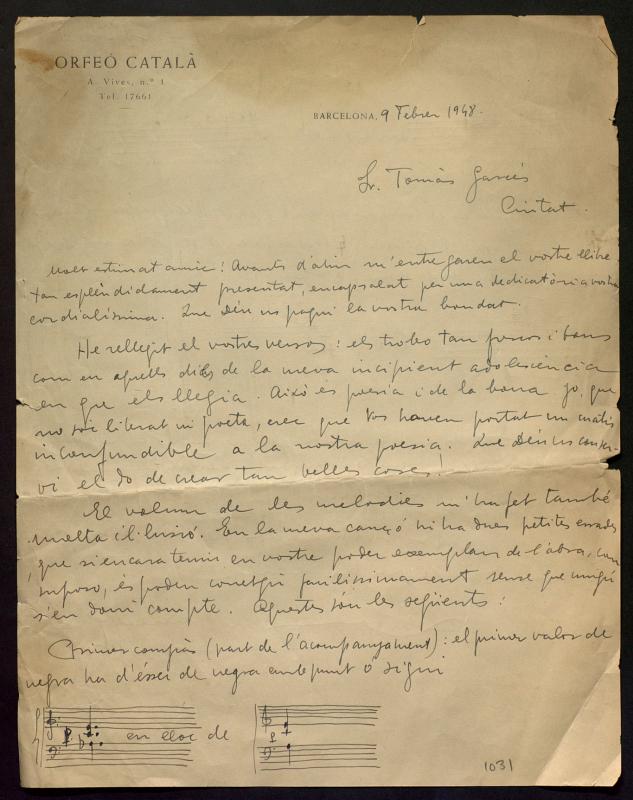 ORFEÓ CATALÀ
A. Vives, n.º 1
Tel. 17661
BARCELONA, 9 Febrer 1948.
Sr. Tomàs Garcés
Ciutat.
Molt estimat amic: Avants d'ahir m'entregaren el vostre llibre
tan esplèndidament presentat, encapsalat per una dedicatòria vostra
cordialíssima. Que Déu us pagui la vostra bondat.
He rellegit el vostres versos: els trobo tan frescos i bons
com en aquells dies de la meva incipient adolescència
en que els llegia. Això és poesia i de la bona. Jo, que
no sóc literat ni poeta, crec que Vos haveu portat un matís
inconfundible a la nostra poesia. Que Déu us conser-
vi el do de crear tan belles coses!
El volum de les melodies m'ha fet també
molta il·lusió. En la meva cançó hi ha dues petites errades
, que si encara teniu en vostre poder exemplars de l'obra, com
suposo, és poden corretgir facilíssimament sense que ningú
s'en doni compte. Aquestes són les següents:
Primer compàs (part de l'acompanyament): el primer valor de
negra ha d'ésser de negra amb punt o sigui
en lloc de
1031